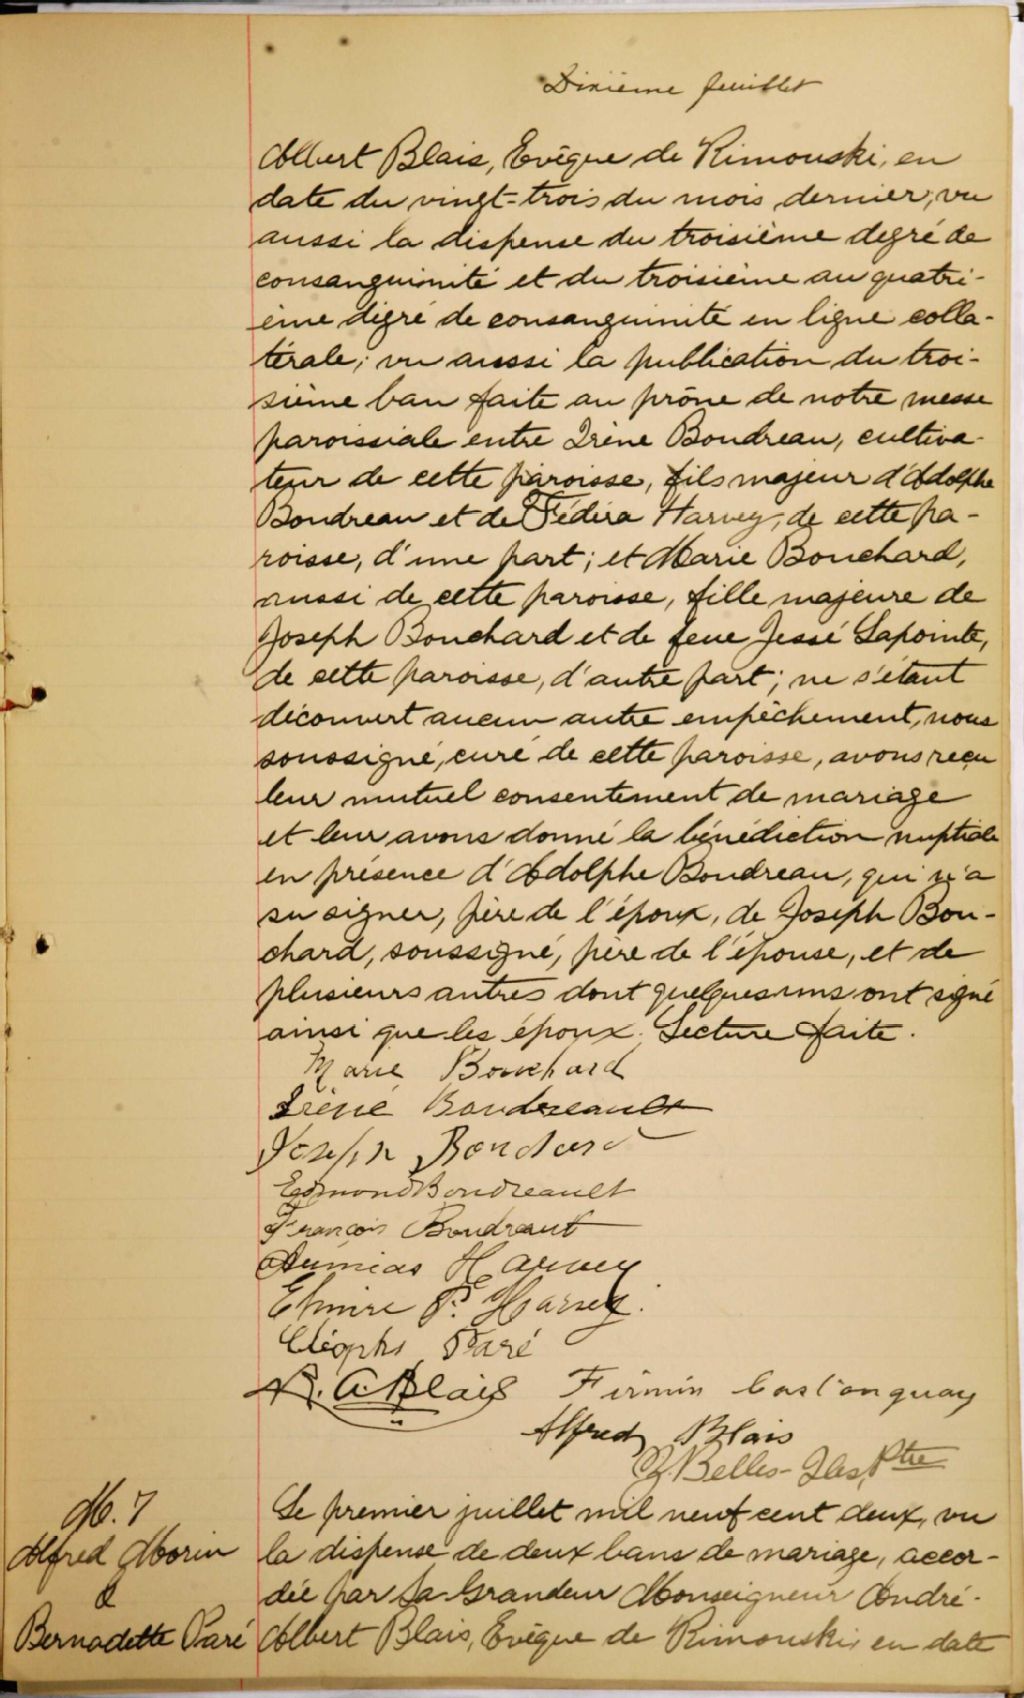 Dixième feuillet
Albert Blais, Evêque de Rimouski, en
date du vingt-trois du mois dernier; vu
aussi la dispense du troisième degré de
consanguinité et du troisième au quatri-
ème degré de consanguinité en ligne colla-
térale; vu aussi la publication du troi-
sième ban faite au prône de notre messe
paroissiale entre Irène Boudreau, cultiva-
teur de cette paroisse, fils majeur d'Adolphe
Boudreau et de Fédéra Harvey, de cette pa-
roisse, d'une part; et Marie Bouchard,
aussi de cette paroisse, fille majeure de
Joseph Bouchard et de feue Jessé Lapointe,
de cette paroisse, d'autre part; ne s'étant
découvert aucun autre empêchement, nous
soussigné, curé de cette paroisse, avons reçu
leur mutuel consentement de mariage
et leur avons donné la bénédiction nuptiale
en présence d'Adolphe Boudreau, qui n'a
su signer, père de l'époux, de Joseph Bou-
chard, soussigné, père de l'épouse, et de
plusieurs autres dont quelques uns ont signé
ainsi que les époux. Lecture faite.
Marie Bouchard
Irène Boudreault
Joseph Bouchard
Edmond Boudreault
François Boudraut
Harvey
Elmire P. Harvey.
Cléophs Paré
R. A. Blais Firmin Castonguay
Alfred Blais
Z. Belles-Isles, Ptre
M. 7
Alfred Morin
&
Bernadette Paré
Le premier juillet mil neuf cent deux, vu
la dispense de deux bans de mariage, accor-
dée par Sa Grandeur Monseigneur André-
Albert Blais, Evêque de Rimouski, en date